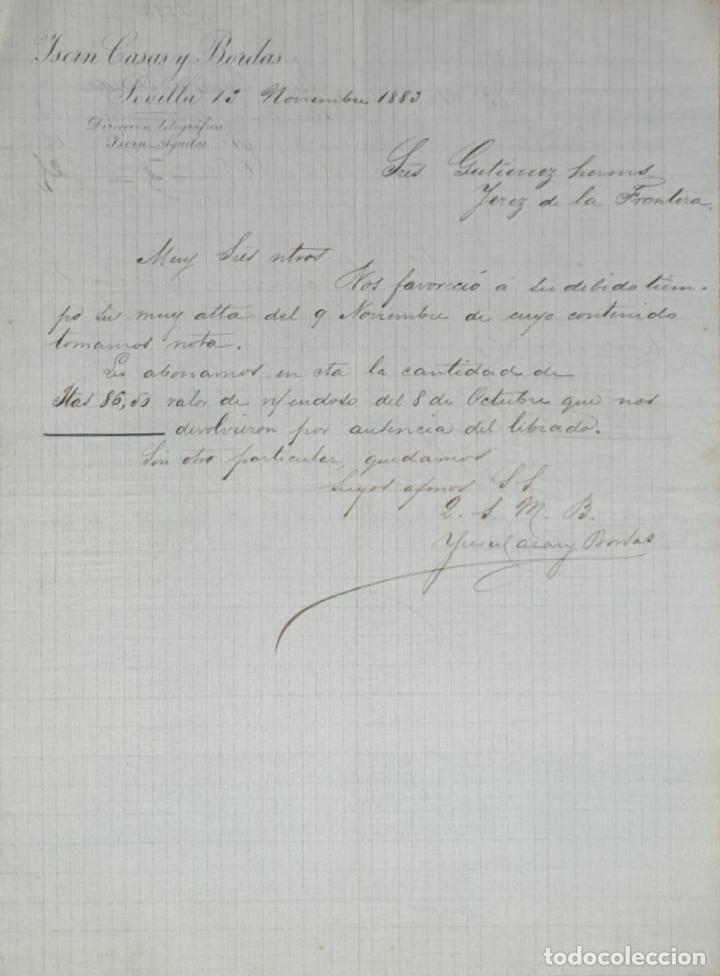 Isern Casas y Bordas
Sevilla 13 Noviembre 1883
Dirección telegráfica
Isern-Aguilas
Sres Gutierrez herms
Jerez de la Frontera.
Muy Sres ntros
Nos favoreció á su debido tiem-
po su muy atta del 9 Noviembre de cuyo contenido
tomamos nota.
Les abonamos en cta la cantidad de
Ptas 86,50 valor de n/endoso del 8 de Octubre que nos
devolvieron por ausencia del librado.
Sin otro particular, quedamos
Suyos afmos S. S.
Q. S. M. B.
Isern Casas y Bordas
todocoleccion
todocoleccion.net